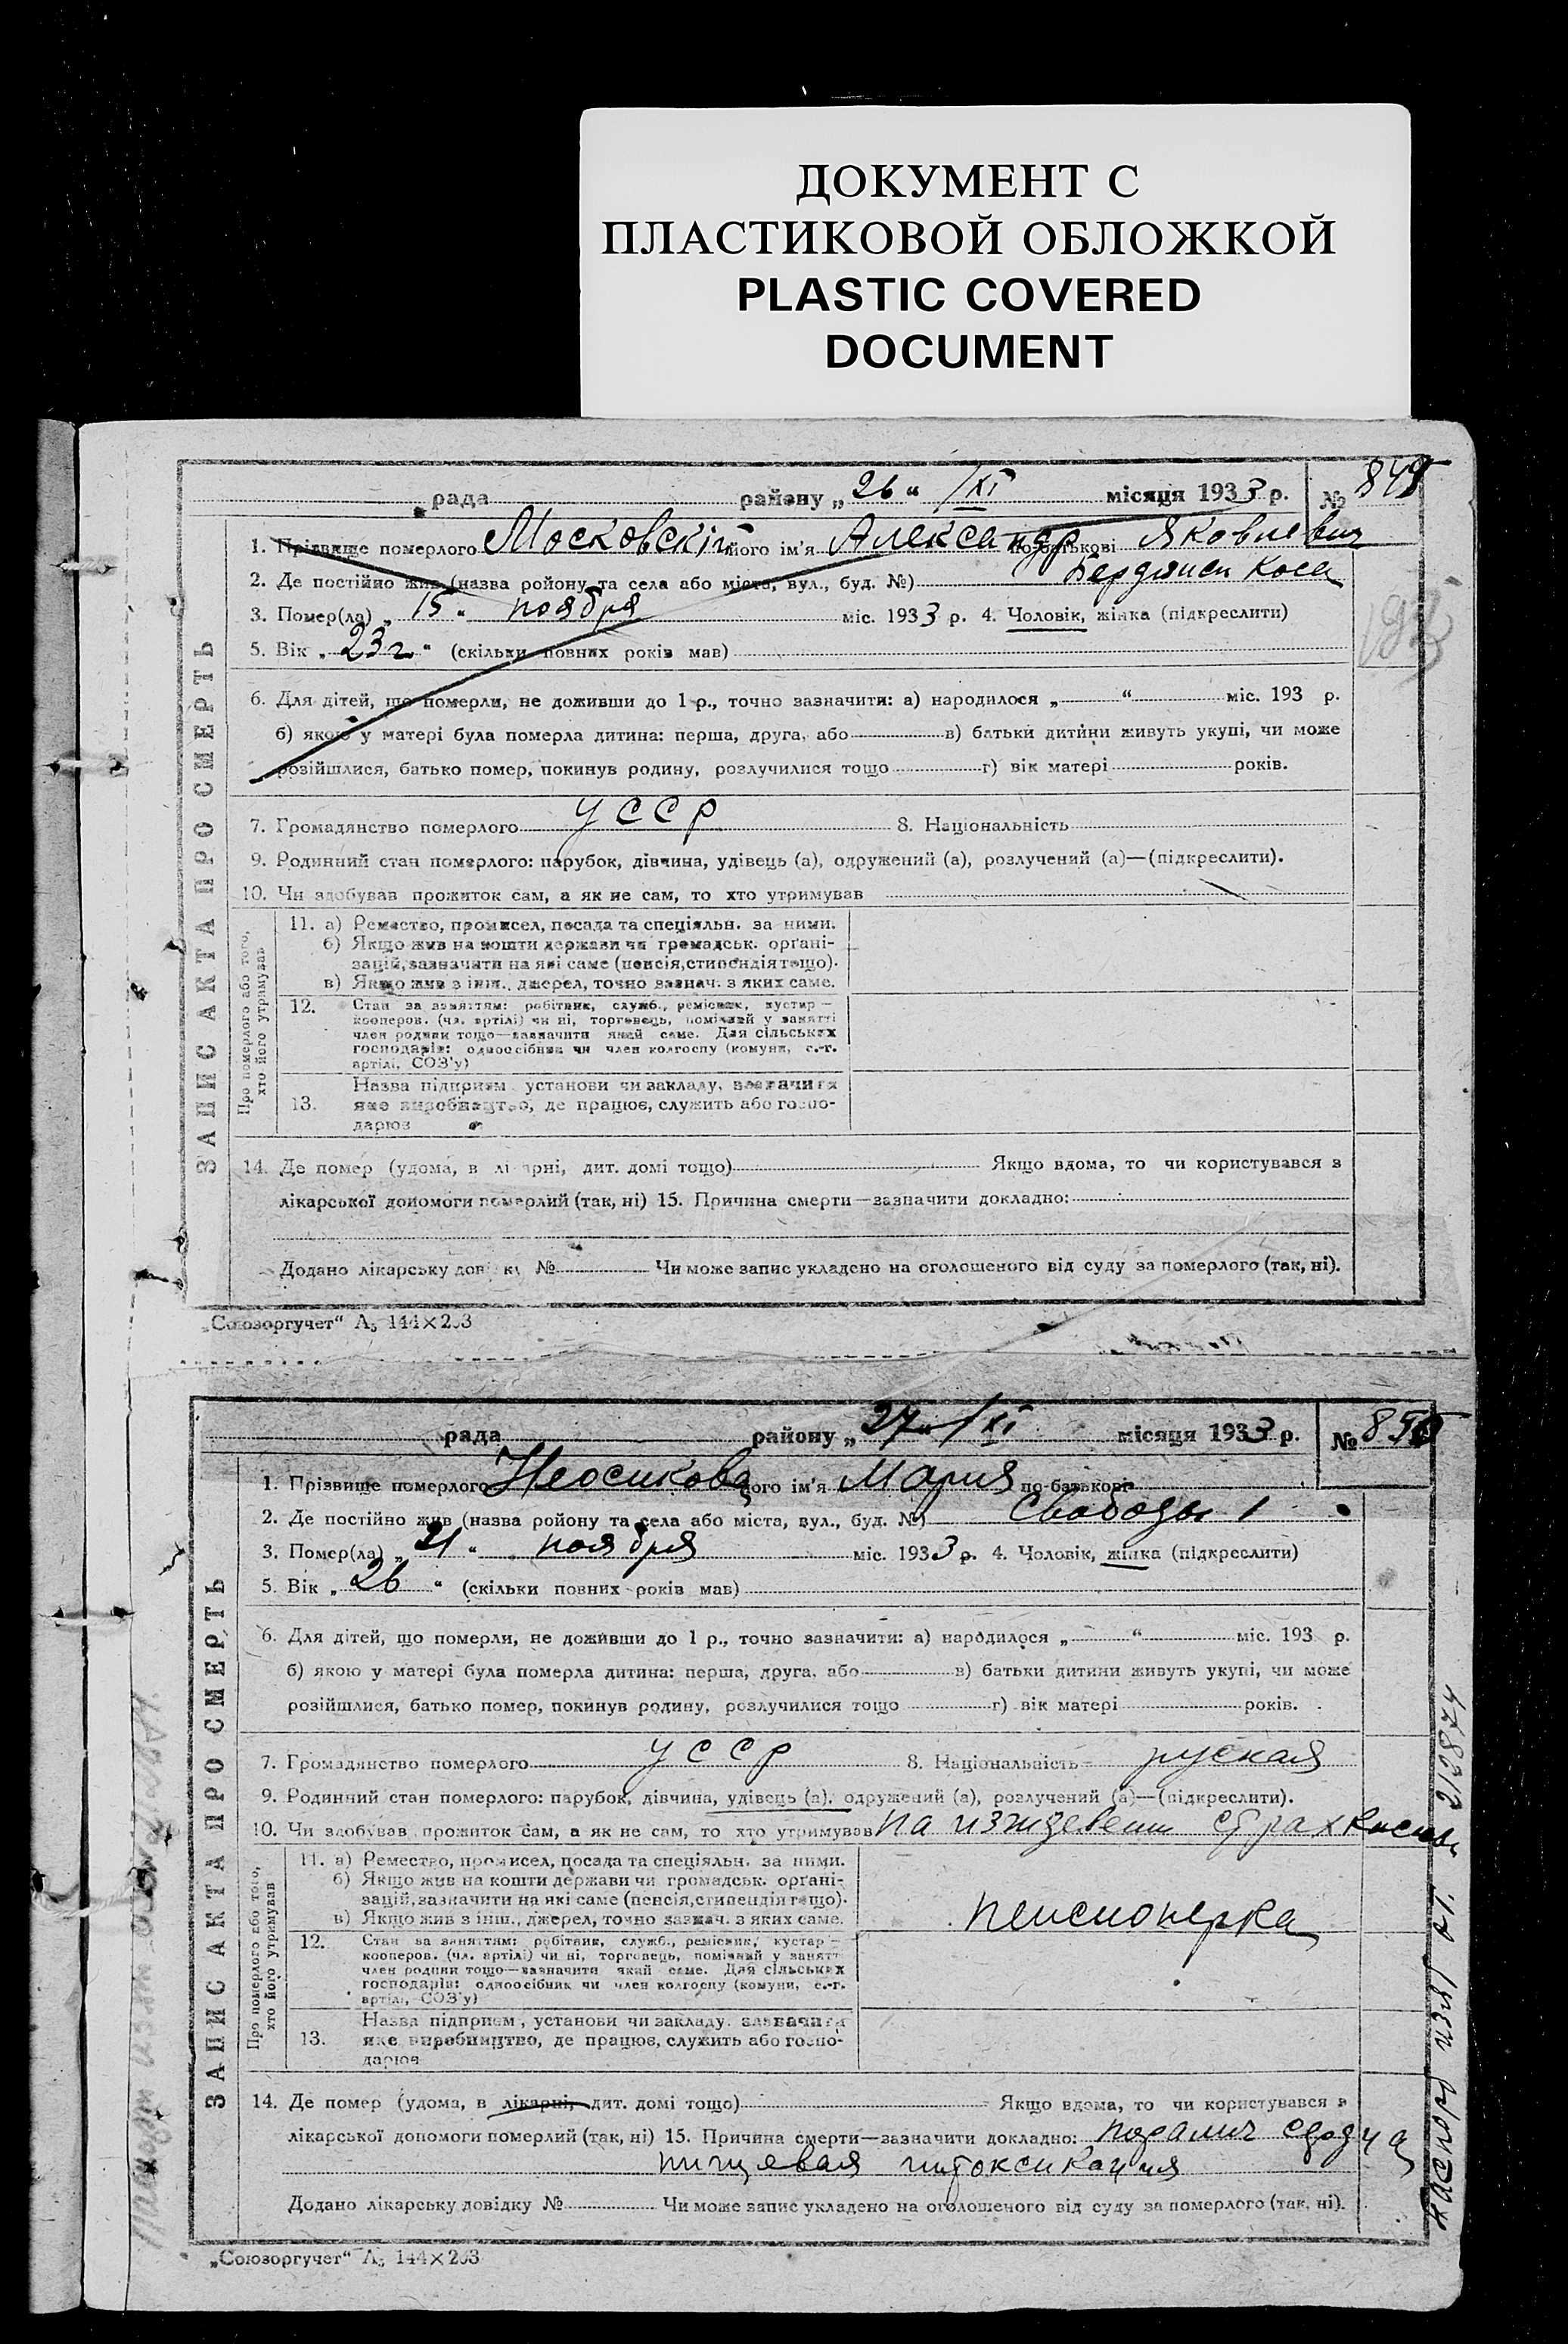 ДОКУМЕНТ С
ПЛАСТИКОВОЙ ОБЛОЖКОЙ
PLASTIC COVERED
DOCUMENT
рада району „26“ /XI місяця 1933 р. № 849
ЗАПИС АКТА ПРО СМЕРТЬ
1. Прізвище померлого Московскій його ім'я Александр по-батькові Яковлевич
2. Де постійно жив (назва ройону та села або міста, вул., буд. №) Бердянск Коса
3. Помер(ла) „15“ ноября міс. 1933 р. 4. Чоловік, жінка (підкреслити)
5. Вік „23 г“ (скільки повних років мав)
6. Для дітей, що померли, не доживши до 1 р., точно зазначити: а) народилося „ “ міс. 193 р.
б) якою у матері була померла дитина: перша, друга, або в) батьки дитини живуть укупі, чи може
розійшлися, батько помер, покинув родину, розлучилися тощо г) вік матері років.
7. Громадянство померлого УССР 8. Національність
9. Родинний стан померлого: парубок, дівчина, удівець (а), одружений (а), розлучений (а)—(підкреслити).
10. Чи здобував прожиток сам, а як не сам, то хто утримував
Про померлого або того, хто його утримував
11. а) Ремество, промисел, посада та спеціяльн. за ними.
б) Якщо жив на кошти держави чи громадськ. органі-
зацій, зазначити на які саме (пенсія, стипендія тощо).
в) Якщо жив з інш., джерел, точно зазнач. з яких саме.
12. Стан за заняттям: робітник, служб., ремісник, кустар —
кооперов. (чл. артілі) чи ні, торговець, помічний у занятті
член родини тощо—зазначити який саме. Для сільських
господарів: одноосібник чи член колгоспу (комуни, с.-г.
артілі, СОЗ'у)
13. Назва підприєм. установи чи закладу, зазначити
яке виробництво, де працює, служить або госпо-
дарює
14. Де помер (удома, в лікарні, дит. домі тощо) Якщо вдома, то чи користувався з
лікарської допомоги померлий (так, ні) 15. Причина смерти—зазначити докладно:
Додано лікарську довідку № Чи може запис укладено на оголошеного від суду за померлого (так, ні).
„Союзоргучет“ А5 144×203
рада району „27“ /XI місяця 1933 р. № 850
ЗАПИС АКТА ПРО СМЕРТЬ
1. Прізвище померлого його ім'я Мария по-батькові
2. Де постійно жив (назва ройону та села або міста, вул., буд. №) Свободы 1
3. Помер(ла) „21“ ноября міс. 1933 р. 4. Чоловік, жінка (підкреслити)
5. Вік „26“ (скільки повних років мав)
6. Для дітей, що померли, не доживши до 1 р., точно зазначити: а) народилося „ “ міс. 193 р.
б) якою у матері була померла дитина: перша, друга, або в) батьки дитини живуть укупі, чи може
розійшлися, батько помер, покинув родину, розлучилися тощо г) вік матері років.
7. Громадянство померлого УССР 8. Національність руская
9. Родинний стан померлого: парубок, дівчина, удівець (а), одружений (а), розлучений (а)—(підкреслити).
10. Чи здобував прожиток сам, а як не сам, то хто утримував на иждевении страхкассы
Про померлого або того, хто його утримував
11. а) Ремество, промисел, посада та спеціяльн. за ними.
б) Якщо жив на кошти держави чи громадськ. органі-
зацій, зазначити на які саме (пенсія, стипендія тощо).
в) Якщо жив з інш., джерел, точно зазнач. з яких саме.
пенсионерка
12. Стан за заняттям: робітник, служб., ремісник, кустар —
кооперов. (чл. артілі) чи ні, торговець, помічний у занятті
член родини тощо—зазначити який саме. Для сільських
господарів: одноосібник чи член колгоспу (комуни, с.-г.
артілі, СОЗ'у)
13. Назва підприєм, установи чи закладу, зазначити
яке виробництво, де працює, служить або госпо-
дарює
14. Де помер (удома, в лікарні, дит. домі тощо) Якщо вдома, то чи користувався з
лікарської допомоги померлий (так, ні) 15. Причина смерти—зазначити докладно: паралич сердца
пищевая интоксикация
Додано лікарську довідку № Чи може запис укладено на оголошеного від суду за померлого (так, ні).
„Союзоргучет“ А5 144×203
паспорт изят